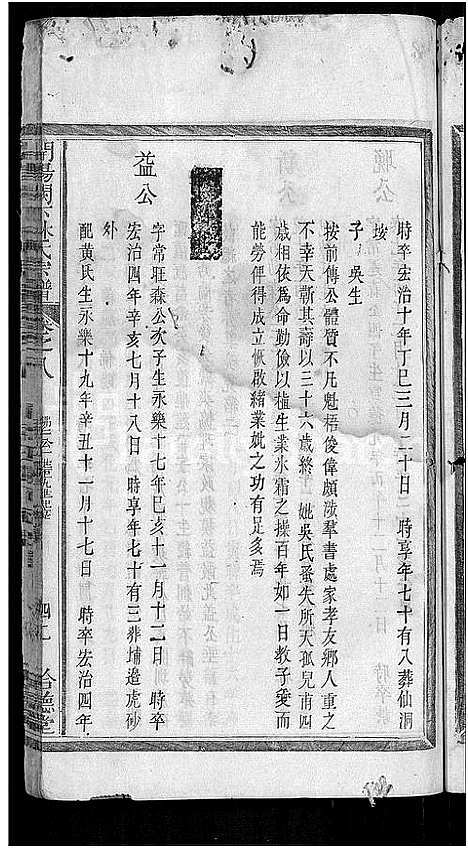 時卒宏治十年丁巳三月二十日　時享年七十有八葬仙洞
垵
子　吳生
按前傳公體質不凡魁梧俊偉頗涉羣書處家孝友鄉人重之
不幸天靳其壽以三十六歲終　妣吳氏蚤失所天孤兒甫四
歲相依爲命勤儉以植生業氷霜之操百年如一日教子愛而
能勞俾得成立恢啟緒業妣之功有足多焉
益公
字常旺森公次子生永樂十七年己亥十一月十二日　時卒
宏治四年辛亥七月十八日　時享年七十有三葬埔邉虎砂
外
配黄氏生永樂十九年辛丑十一月十七日　時卒宏治四年
氏宗譜
卷之八